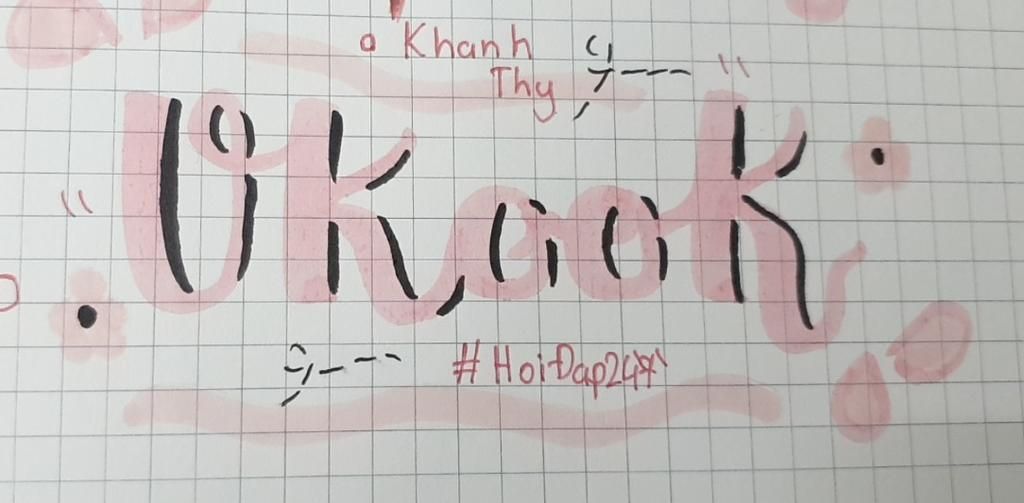 Khanh
Thy
Vkook
#HoiĐap247